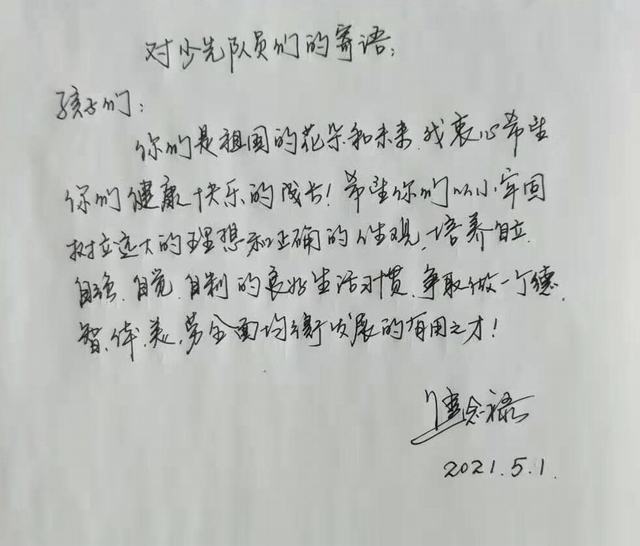 对少先队员们的寄语：
孩子们：
你们是祖国的花朵和未来，我衷心希望
你们健康快乐的成长！希望你们从小牢固
树立远大的理想和正确的人生观，培养自立、
自强、自觉、自制的良好生活习惯，争取做一个德、
智、体、美、劳全面均衡发展的有用之才！
2021.5.1.